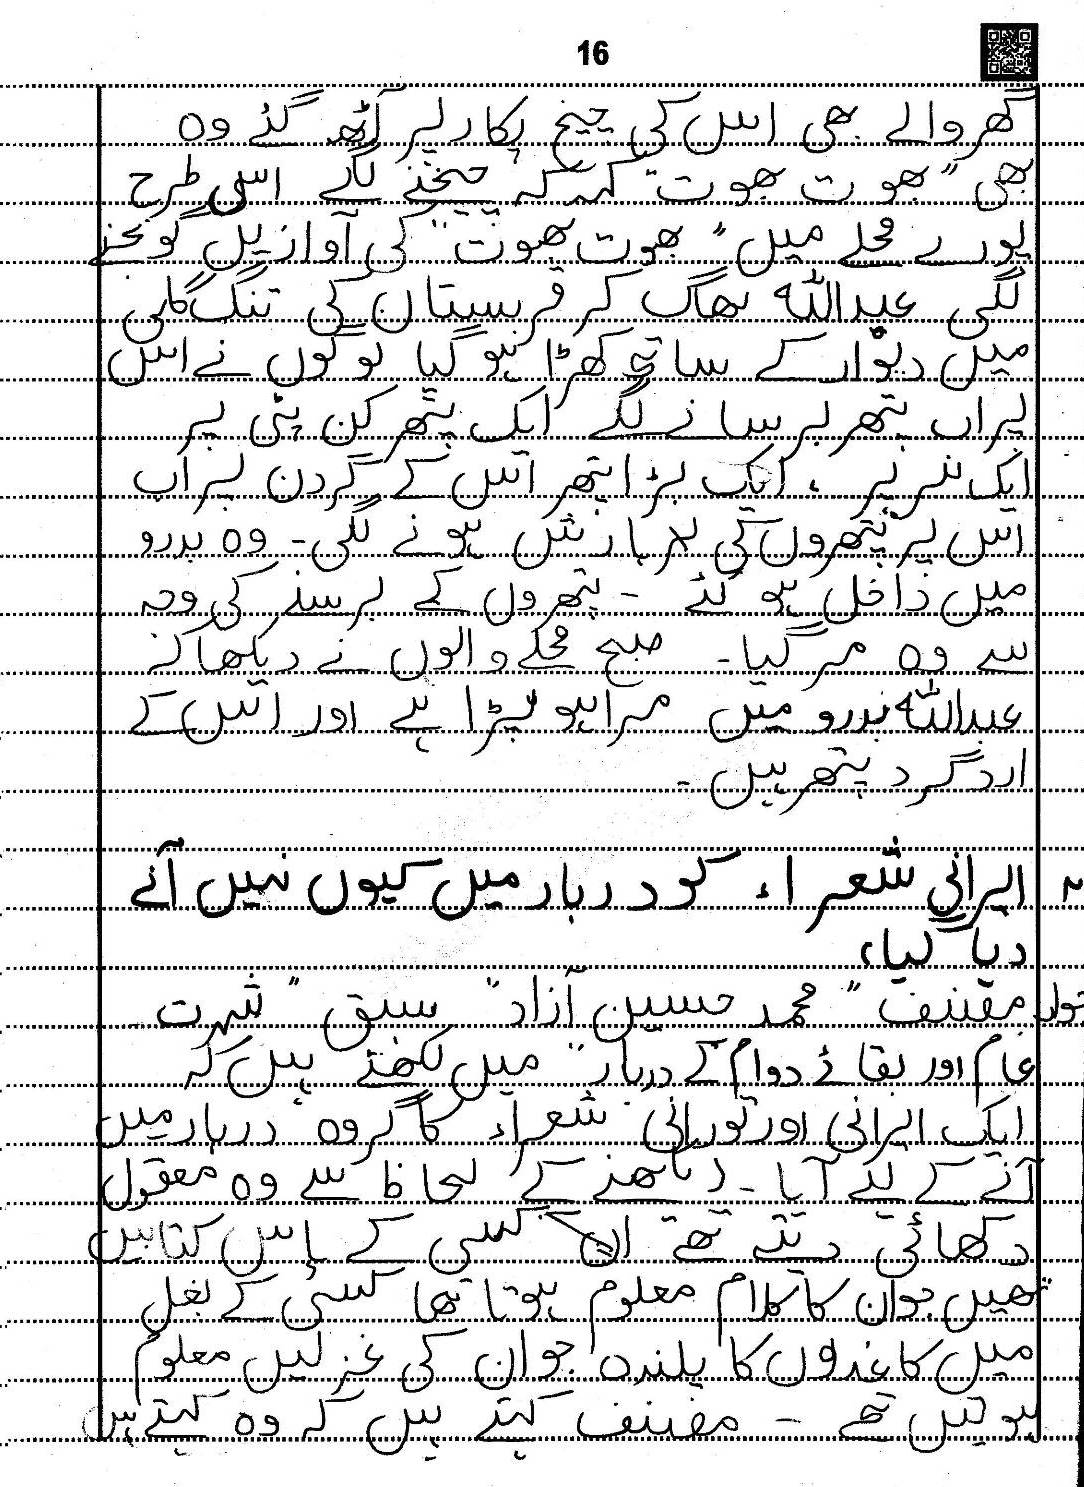 16
گھر والے بھی اس کی چیخ پکار پر اُٹھ گئے وہ
بھی "بھوت بھوت" کہہ کہ چیخنے لگے اس طرح
پورے محلے میں "بھوت بھوت" کی آوازیں گونجنے
لگی عبداللہ بھاگ کر قبرستان کی تنگ گلی
میں دیوار کے ساتھ کھڑا ہو گیا لوگوں نے اس
پر اب پتھر برسانے لگے ایک پتھر کن پٹی پر
ایک سر پر ، ایک بڑا پتھر اس کے گردن پر اب
اس پر پتھروں کی بارش ہونے لگی۔ وہ بدرو
میں داخل ہو گئے ۔ پتھروں کے برسنے کی وجہ
سے وہ مر گیا۔ صبح محلے والوں نے دیکھا کہ
عبداللہ بدرو میں مرا ہو پڑا ہے اور اس کے
ارد گرد پتھر ہیں ۔
۲ ایرانی شعراء کو دربار میں کیوں نہیں آنے
دیا گیا،
مصنف "محمد حسین آزاد" سبق "شہرت
عام اور بقائے دوام کے دربار" میں لکھتے ہیں کہ
ایک ایرانی اور تورانی شعراء کا گروہ دربار میں
آنے کے لئے آیا۔ دیکھنے کے لحاظ سے وہ معقول
دکھائی دیتے تھے ان کسی کے پاس کتابیں
تھیں جو ان کا کلام معلوم ہوتا تھا کسی کے بغل
میں کاغذوں کا پلندہ جو ان کی غزلیں معلوم
ہوتیں تھے ۔ مصنف کہتے ہیں کہ وہ کہتے ہیں